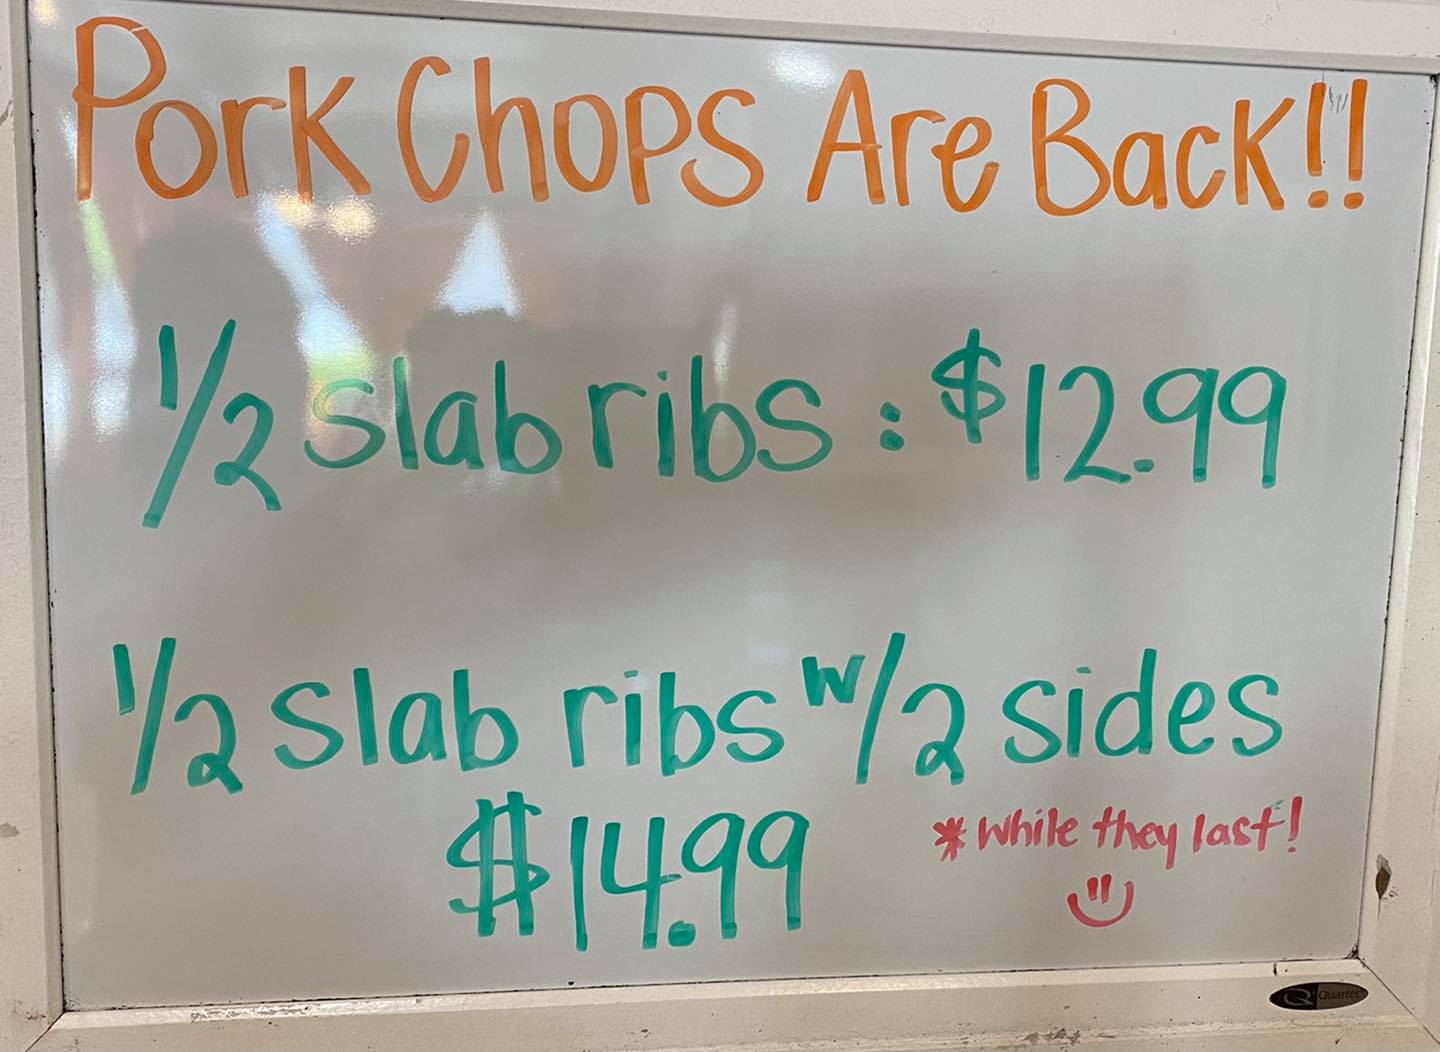 Pork Chops Are Back!!
1/2 slab ribs : $12.99
1/2 slab ribs w/2 sides
$14.99
*while they last!
Q Quartet